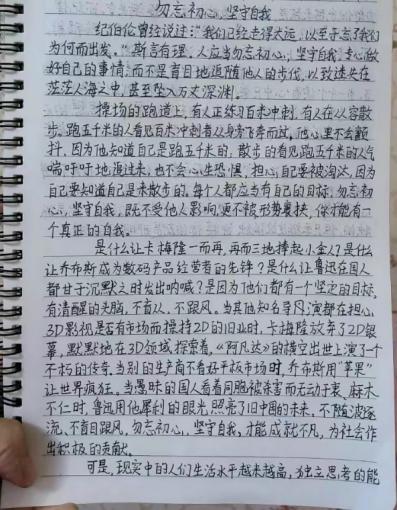 勿忘初心,坚守自我
纪伯伦曾经说过:"我们已经走得太远,以至于忘了我们
为何而出发。"斯言有理。人应当勿忘初心,坚守自我,专心做
好自己的事情,而不是盲目地追随他人的步伐,以致迷失在
茫茫人海之中,甚至坠入万丈深渊。
操场的跑道上,有人正练习百米冲刺,有人在从容散
步。跑五千米的人看见百米冲刺者从身旁飞奔而过,他心里不会颤
抖,因为他知道自己是跑五千米的;散步的看见跑五千米的人气
喘吁吁地追过来,也不会心生恐惧,担心自己要被淘汰,因为
自己要知道自己是来散步的。每个人都应当有自己的目标,勿忘初
心,坚守自我,既不受他人影响,更不被形势裹挟,你才能有一
个真正的自我。
是什么让卡梅隆一而再,再而三地捧起小金人?是什么
让乔布斯成为数码产品经营者的先锋?是什么让鲁迅在国人
都甘于沉默之时发出呐喊?是因为他们都有一个坚定的目标,
有清醒的头脑,不盲从、不跟风。当其他知名导演都在担心
3D影视是否有市场而操持2D的旧业时,卡梅隆放弃了2D银
幕,默默地在3D领域探索着,《阿凡达》的横空出世上演了一个
不朽的传奇。当别的生产商不看好平板市场时,乔布斯用"苹果"
让世界疯狂。当愚昧的国人看着同胞被杀害而无动于衷、麻木
不仁时,鲁迅用他犀利的眼光照亮了旧中国的未来。不随波逐
流,不盲目跟风,勿忘初心,坚守自我,才能成就不凡,为社会作
出积极的贡献。
可是,现实中的人们生活水平越来越高,独立思考的能